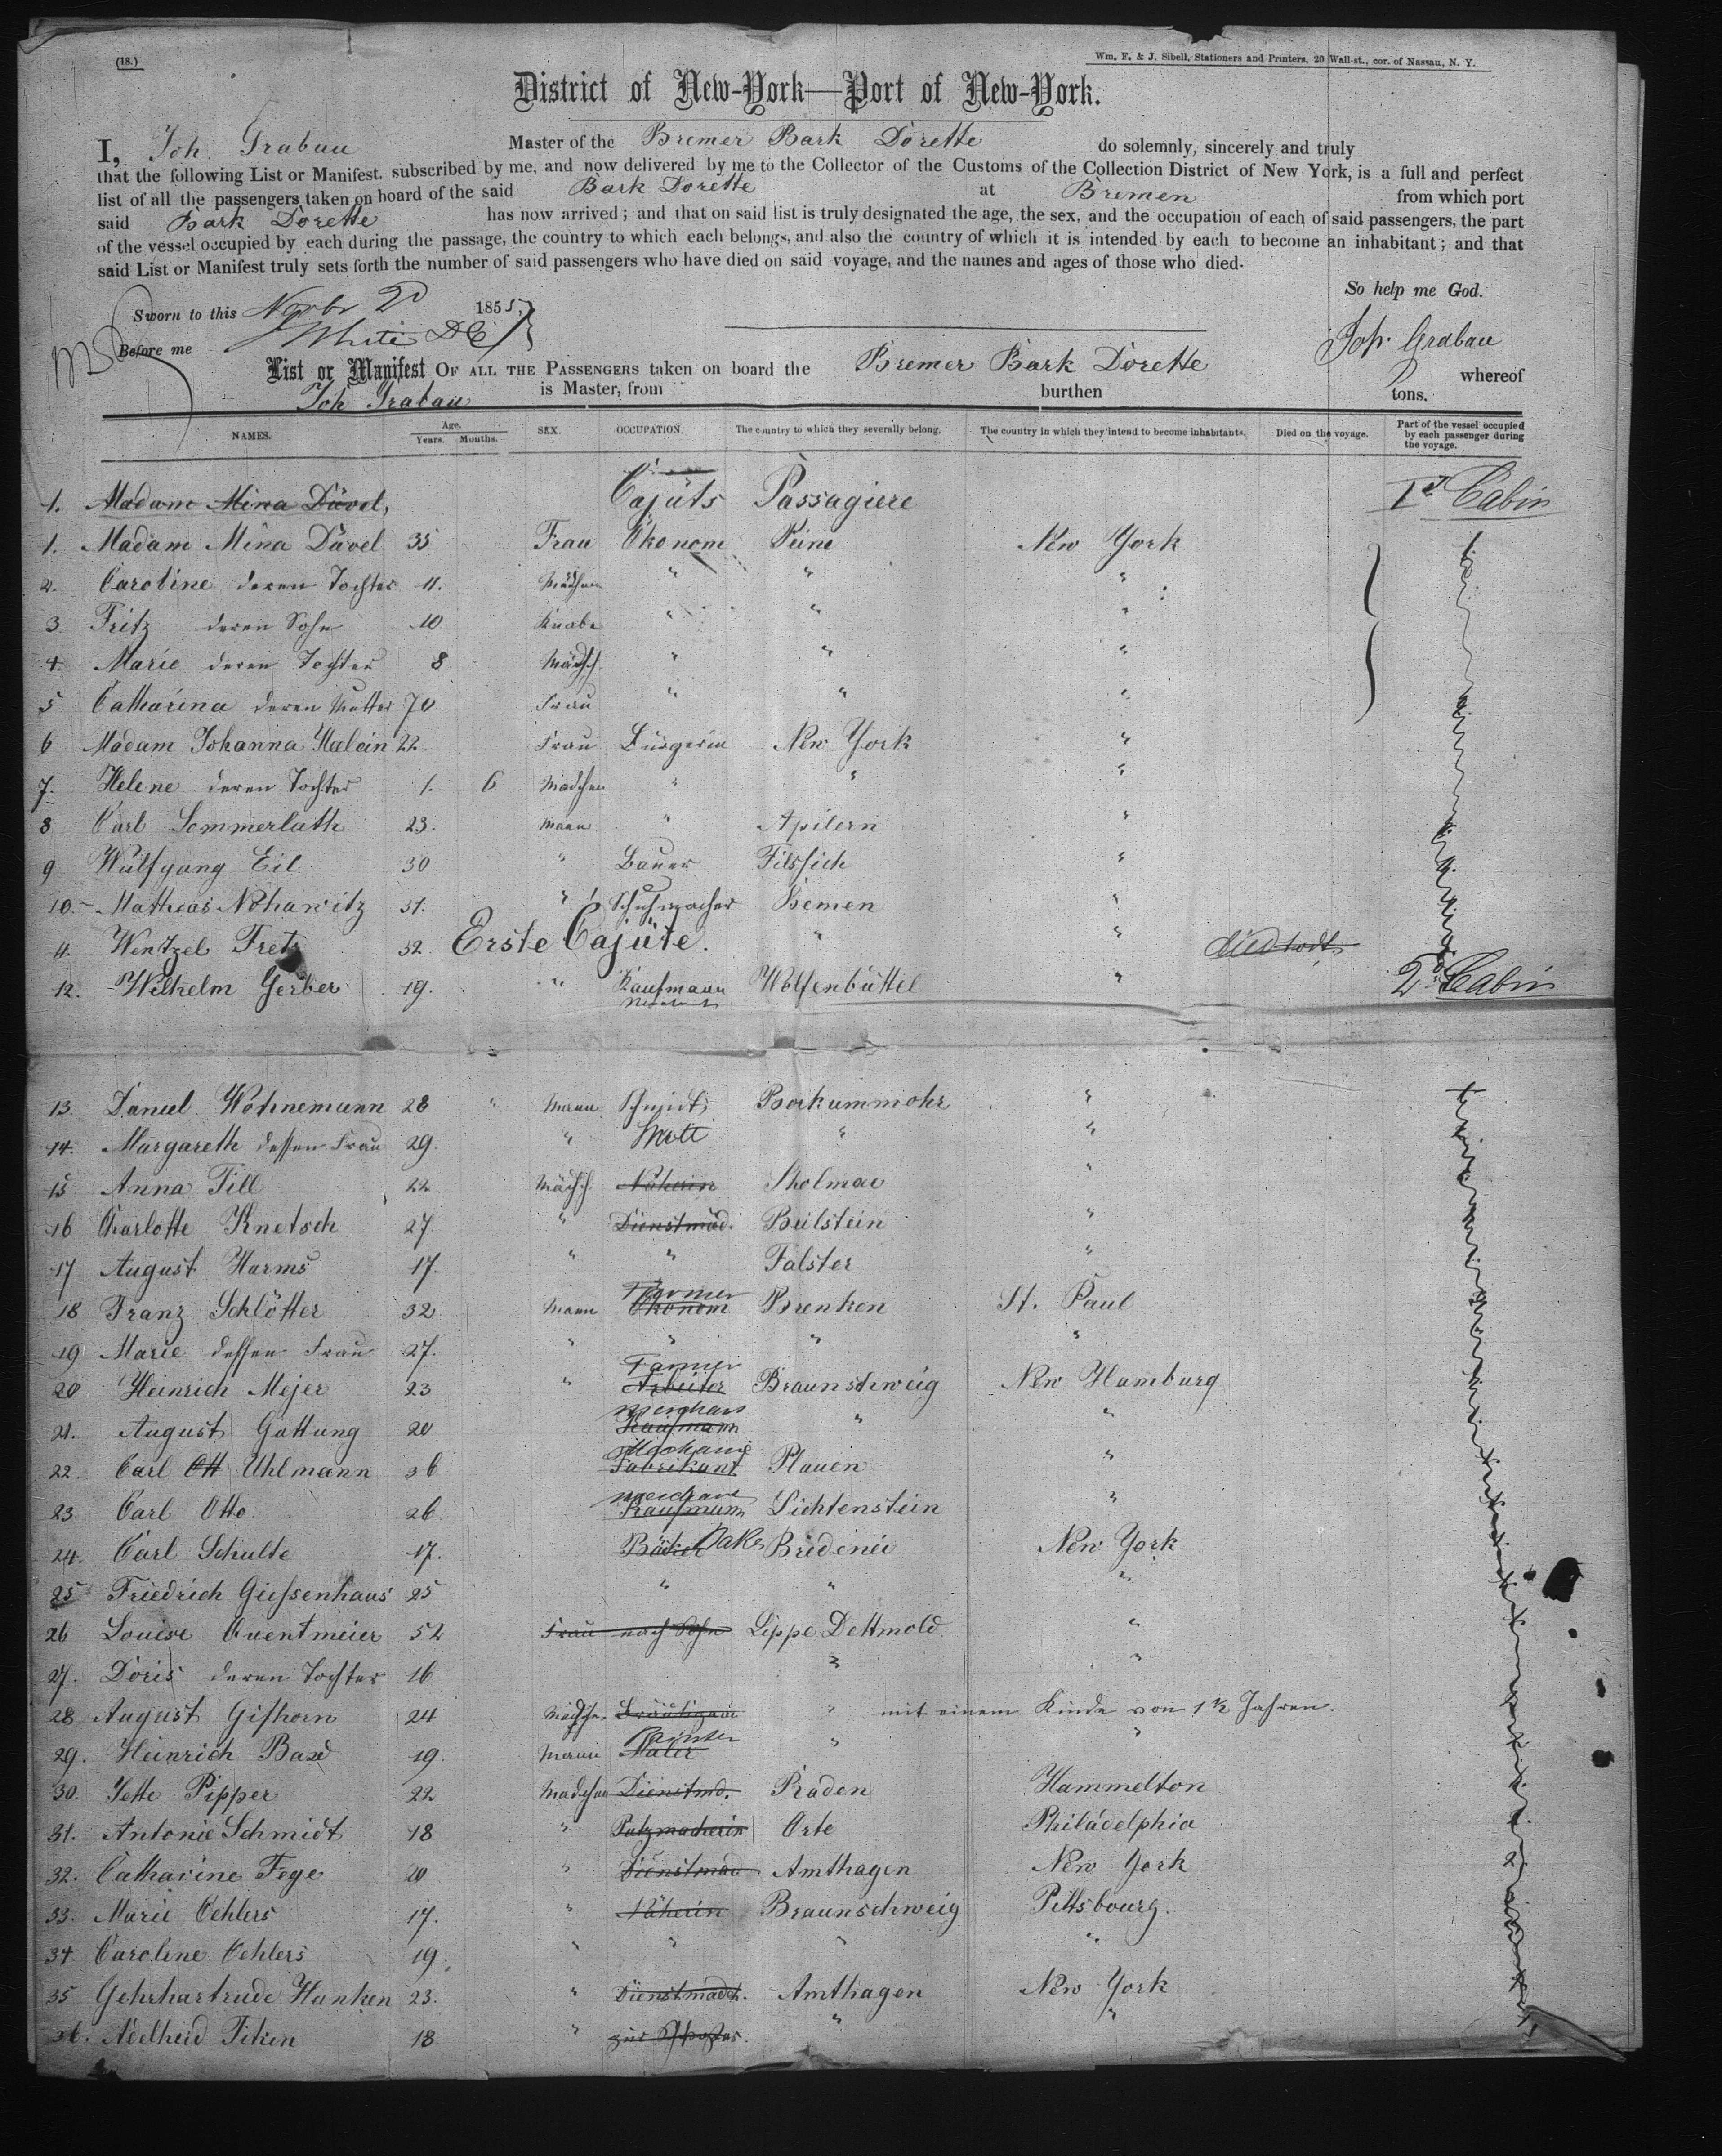 (18.)
Wm. F. & J. Sibell, Stationers and Printers, 20 Wall-st., cor. of Nassau, N. Y.
District of New-York—Port of New-York.
I, Joh. Grabau Master of the Bremer Bark Dorette do solemnly, sincerely and truly
that the following List or Manifest. subscribed by me, and now delivered by me to the Collector of the Customs of the Collection District of New York, is a full and perfect
list of all the passengers taken on board of the said Bark Dorette at Bremen from which port
said Bark Dorette has now arrived; and that on said list is truly designated the age, the sex, and the occupation of each of said passengers, the part
of the vessel occupied by each during the passage, the country to which each belongs, and also the country of which it is intended by each to become an inhabitant; and that
said List or Manifest truly sets forth the number of said passengers who have died on said voyage, and the names and ages of those who died.
So help me God.
Sworn to this 1855,
Joh. Grabau
Before me White
List or Manifest OF ALL THE PASSENGERS taken on board the Bremer Bark Dorette whereof
Joh Grabau is Master, from burthen tons.
NAMES. Age. Years. Months. SEX. OCCUPATION. The country to which they severally belong. The country in which they intend to become inhabitants. Died on the voyage. Part of the vessel occupied by each passenger during the voyage.
1. Madam Mina Düvel, Cajüts Passagiere 1st Cabin
1. Madam Mina Düvel 35 Frau Ökonom Peine New York
2. Caroline deren Tochter 11. Mädchen " " "
3 Fritz deren Sohn 10 Knabe " " "
4. Marie deren Tochter 8 Mädch. " " "
5 Catharina deren Mutter 70 Frau " " "
6 Madam Johanna 22 Frau Bürgerin New York "
7. Helene deren Tochter 1. 6 Mädchen " " "
8 Carl Sommerlath 23. Mann " Apilern "
9 Wulfgang Eil 30 " Bauer "
10. Matheas 31. " Schuhmacher Bemen "
11 Wentzel Fretz 32. Erste Cajüte. " "
12. Wilhelm Gerber 19. " Kaufmann Wolfenbüttel " 2d Cabin
13. Daniel Wohnemann 28 " Mann Schmidt Borkummohr "
14. Margareth dessen Frau 29. " " "
15 Anna Till 22 Mädch. Näherin "
16 Charlotte Knetsch 27. " Dienstmäd. Beilstein "
17 August Harms 17. " " Falster "
18 Franz Schlötter 32 Mann Ökonom Farmer Brenken St. Paul
19 Marie dessen Frau 27. " " " "
20 Heinrich Mejer 23 " Arbeiter Farmer Braunschweig New Hamburg
21. August Gattung 20 Kaufmann " "
22. Carl Ott Uhlmann 36 Fabrikant Mechanic Plauen "
23 Carl Otto 26 Kaufmann Lichtenstein "
24. Carl Schulte 17. Bäcker Baker New York
25 Friedrich Giessenhaus 25 " " "
26 Louise 52 Frau nach Sohn Lippe Dettmold. "
27. Doris deren Tochter 16 " "
28 August Gifhorn 24 Mädchen " mit einem Kinde von 1½ Jahren.
29. Heinrich 19. Mann Maler Painter " "
30. Jette Pipper 22 Mädchen Dienstmd. Raden Hammelton
31. Antonie Schmidt 18 " Putzmacherin Orte Philadelphia
32. Catharine Fege 20 " Dienstmäd Amthagen New York
33. Marie Oehlers 17. " Näherin Braunschweig Pittsbourg.
34. Caroline Oehlers 19. " " " "
35 Gehrhartrude Hanken 23. " Dienstmädch. Amthagen New York
36. Adelheid Fiken 18 " " "